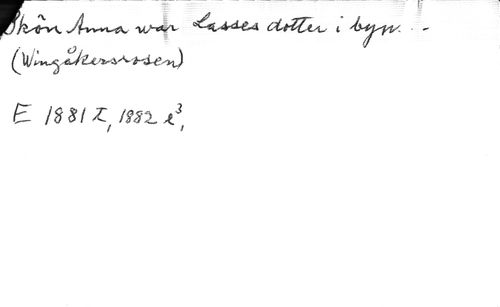 Skön Anna war Lasses dotter i byn. . -
(Wingåkersrosen)
E 1881 I, 1882 e³,